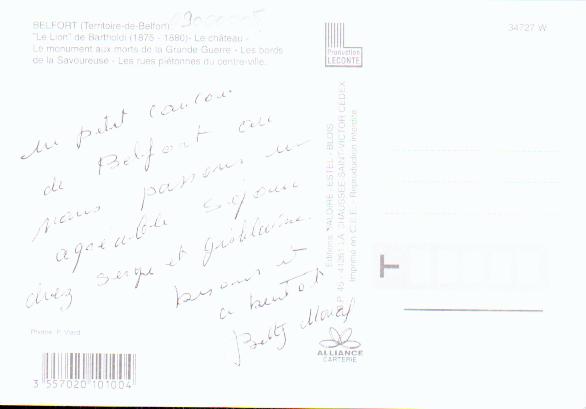 BELFORT (Territoire-de-Belfort)
"Le Lion" de Bartholdi (1875 - 1880)- Le château -
Le monument aux morts de la Grande Guerre - Les bords
de la Savoureuse - Les rues piétonnes du centre-ville.
34727 W
Production
LECONTE
un petit coucou
de Belfort ou
nous passons un
agréable séjour
chez Serge et
bisous et
a bientôt
Betty
Editions VALOIRE - ESTEL - BLOIS
B.P. 45 - 41261 LA CHAUSSEE SAINT-VICTOR CEDEX
Imprimé en C.E.E. - Reproduction interdite
Photos: P. Viard
ALLIANCE
CARTERIE
3 557020 101004